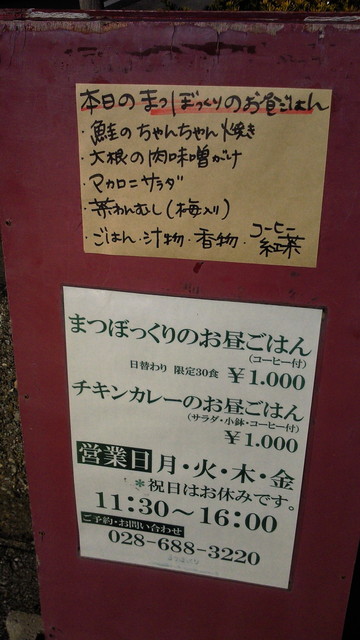 本日のまつぼっくりのお昼ごはん
・鮭のちゃんちゃん焼き
・大根の肉味噌がけ
・マカロニサラダ
・茶わんむし(梅入り)
・ごはん・汁物・香物・コーヒー 紅茶
まつぼっくりのお昼ごはん
(コーヒー付)
日替わり 限定30食 ¥1.000
チキンカレーのお昼ごはん
(サラダ・小鉢・コーヒー付)
¥1.000
営業日 月・火・木・金
*祝日はお休みです。
11:30~16:00
ご予約・お問い合わせ
028-688-3220